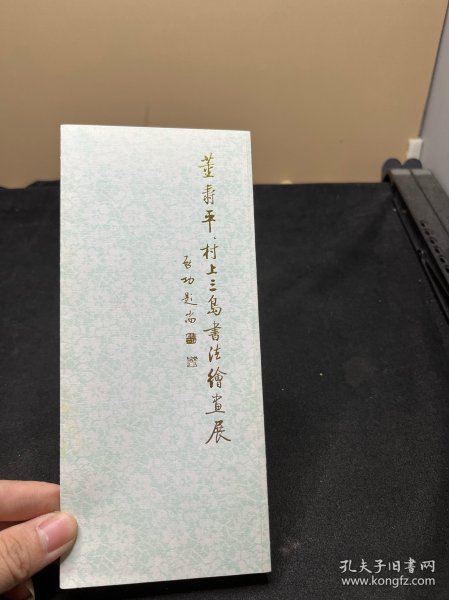 董寿平、村上三島書法繪畫展
启功題嵓
孔夫子旧书网
www.kongfz.com